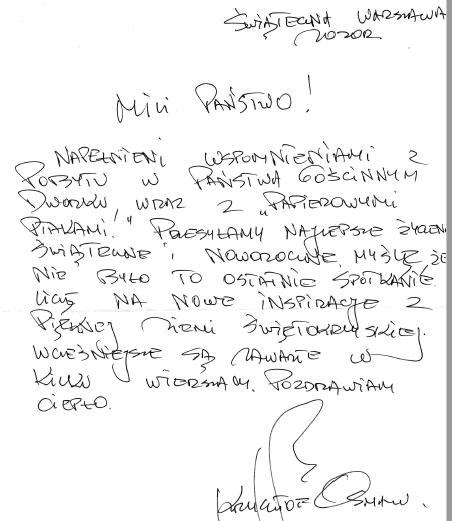 ŚWIĄTECZNA WARSZAWA
2020R
MILI PAŃSTWO!
NAPEŁNIENI WSPOMNIENIAMI Z
POBYTU W PAŃSTWA GOŚCINNYM
DWORKU, WRAZ Z „PAPIEROWYMI
PTAKAMI." PRZESYŁAMY NAJLEPSZE ŻYCZEN
ŚWIĄTECZNE I NOWOROCZNE. MYŚLĘ, ŻE
NIE BYŁO TO OSTATNIE SPOTKANIE.
LICZĘ NA NOWE INSPIRACJE Z
PIĘKNEJ ZIEMI ŚWIĘTOKRZYSKIEJ.
WCZEŚNIEJSZE SĄ ZAWARTE W
KILKU WIERSZACH. POZDRAWIAM
CIEPŁO.